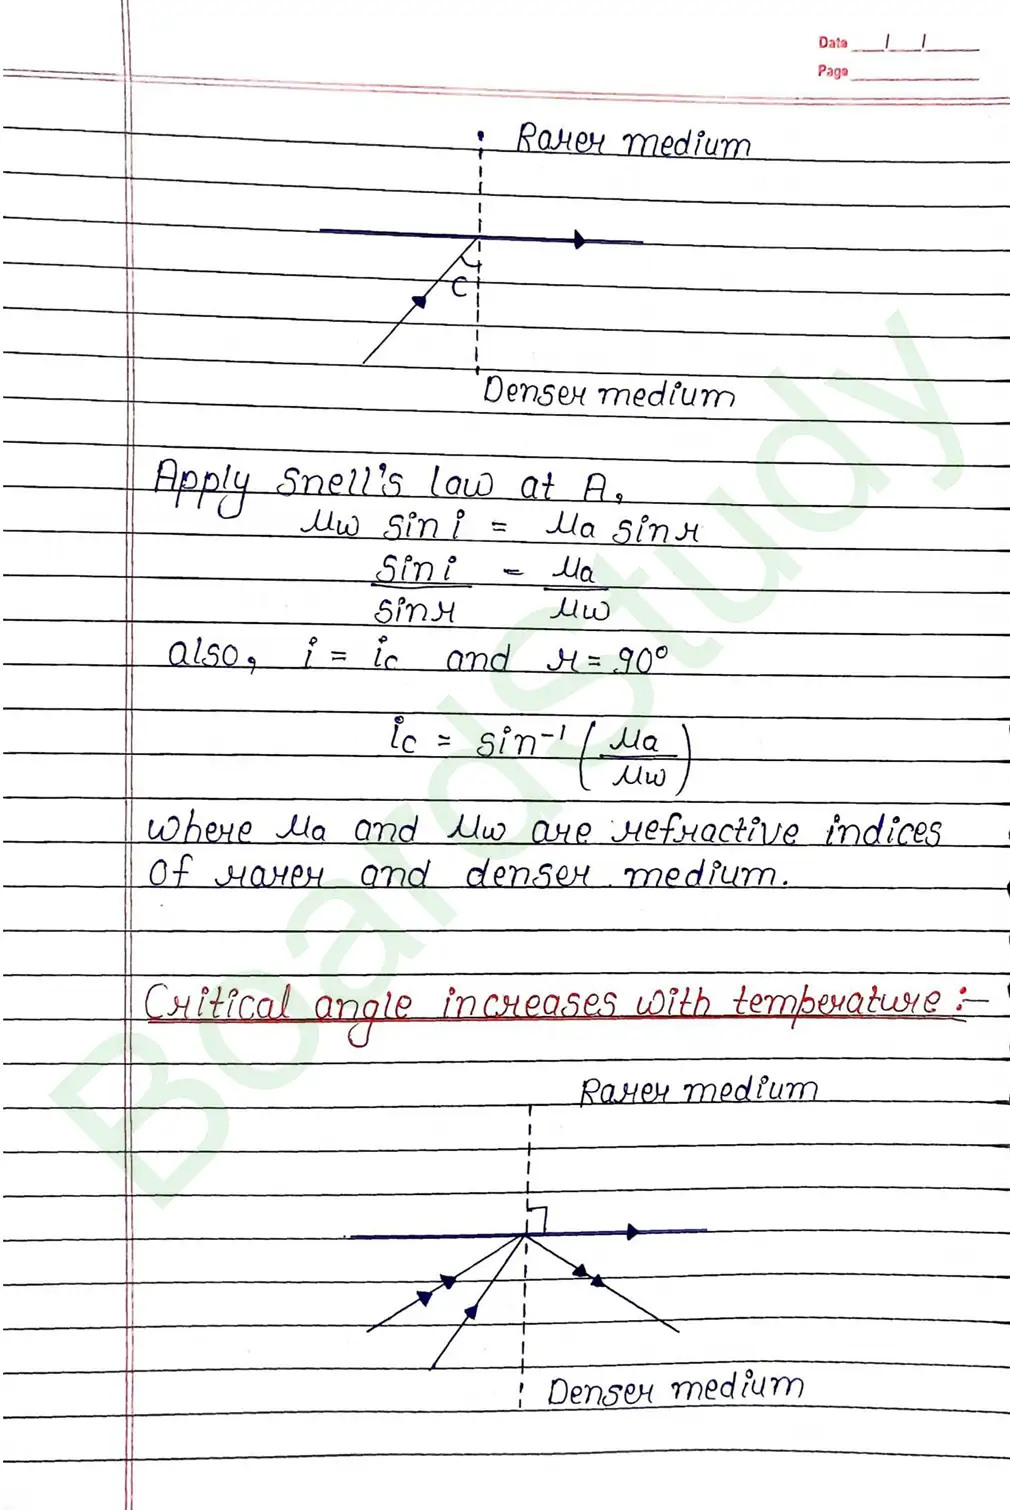 Date / /
Page
Rarer medium
C
Denser medium
Apply Snell's law at A,
μw sin i = μa sin r
sin i / sin r = μa / μw
also, i = ic and r = 90°
ic = sin⁻¹ (μa / μw)
where μa and μw are refractive indices
of rarer and denser medium.
Critical angle increases with temperature :-
Rarer medium
Denser medium
BoardStudy